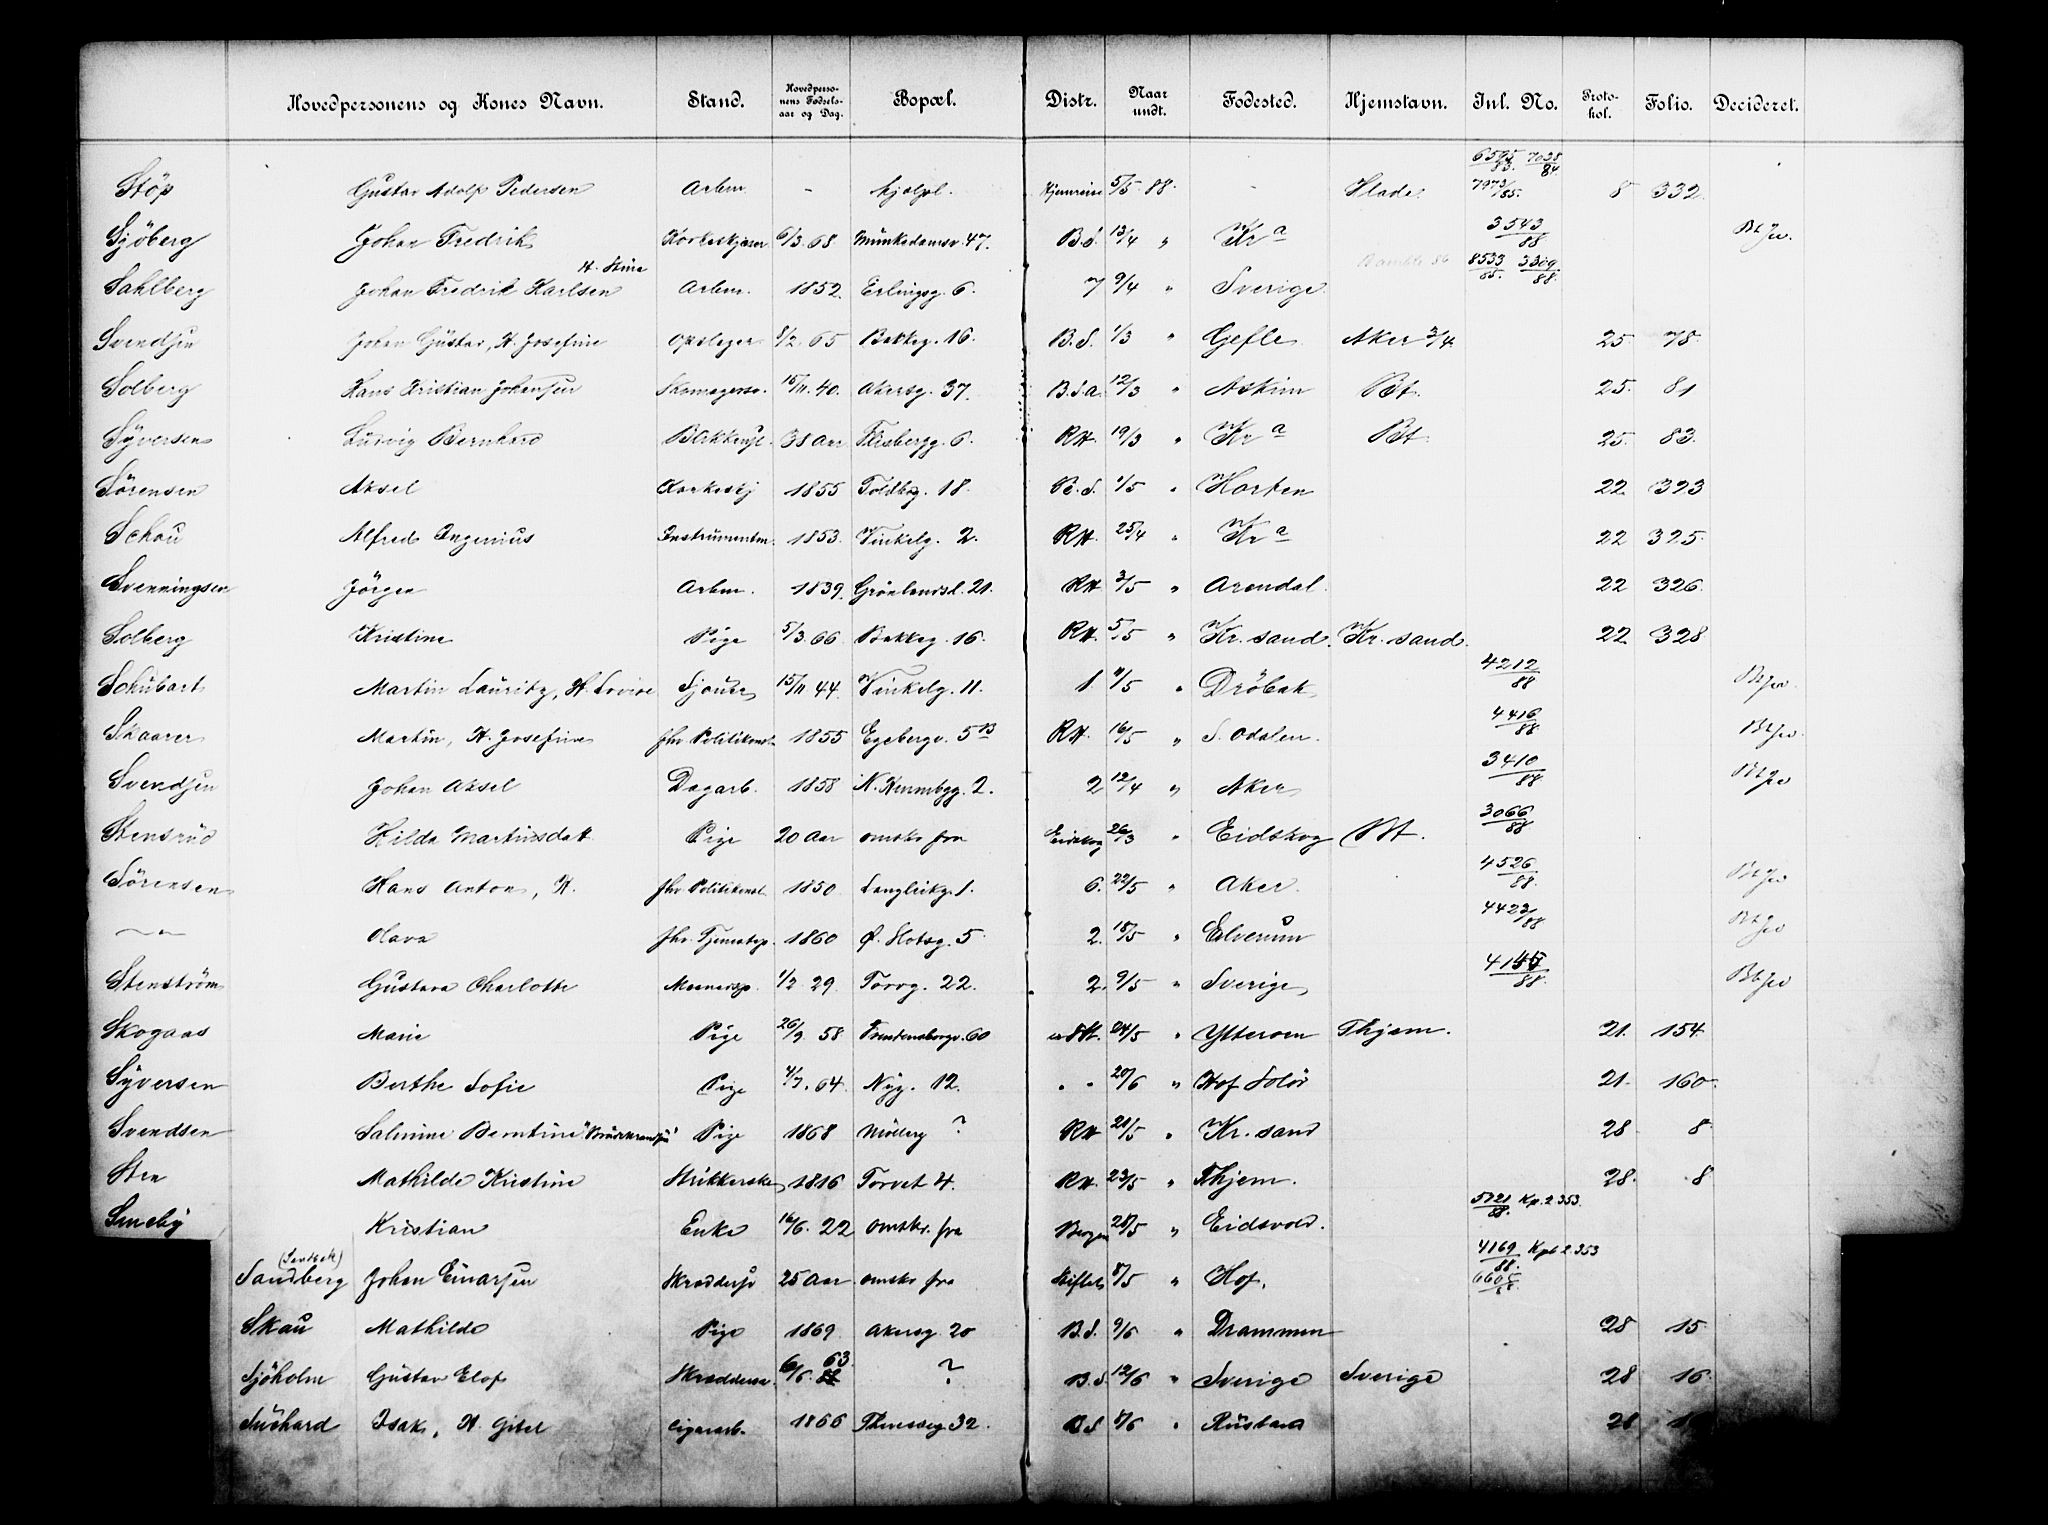 Hovedpersonens og Kones Navn. Stand. Hovedpersonens Fødselsaar og Dag. Bopæl. Distr. Naar undt. Fødested. Hjemstavn. Inl. No. Protokol. Folio. Decideret.
Støp Gustav Adolf Pedersen Arbm. - hjælpl. Hjemreise 5/5 88. - Hlade. 6595/83. 7038/84 7973/85. 8 332
Sjöberg Johan Fredrik Korkeskjærer 6/3 68 Munkedamsv. 47. B.S. 13/4 " Kr a 3543/88
Sahlberg Johan Fredrik Karlsen H. Stina Arbm. 1852. Erlingsg. 6. 7 9/4 " Sverige. 8533/85. 3309/88.
Svendsen Johan Gustav, H. Josefine Opslager 8/2 65 Bakkeg. 16. B.S. 1/3 " Gefle Aker 3/4 25 78
Solberg Hans Kristian Johansen Skomagersv. 15/11. 40. Akersg. 37. B.S.a. 12/3 " Askim Bt. 25. 81
Syversen Ludvig Bernhard 38 Aar Flisbergg. 6. RH. 19/3 " Kr a Bt 25. 83.
Sørensen Aksel Korkeskj 1855 Toldbg. 18. B.S. 1/5 " Horten 22 323
Schou Alfred Ingenius Instrumentm. 1853. Vinkelg. 2. RH. 25/4 " Kr a 22 325.
Svenningsen Jørgen Arbm. 1839. Grønlandsl. 21. RH 3/5 " Arendal. 22 326.
Solberg Kristine Pige 5/3. 66. Bakkeg. 16. RH. 5/5 " Kr. sand. Kr. sand. 22 328
Schubart Martin Lauritz, H. Lovise Sjouer 15/11 44. Vinkelg. 11. 1. 11/5 " Drøbak 4212/88
Skaarer Martin, H. Josefine fhv. Politikonst. 1855 Egebergv. 5 B RH. 16/5 " S. Odalen. 4416/88
Svendsen Johan Aksel Dagarb. 1858 2. 2 12/4 " Aker 3410/88
Stensrud Hilda Martinsdatt. Pige 20 Aar omsk. fra Eidskog 26/3 " Eidskog Bt. 3066/88
Sørensen Hans Anton, H. fhv. Politikonst. 1850 Langlikg. 1. 6. 22/5 " Aker. 4526/88.
-"- Olava fhv. Tjenestep. 1860 Ø. Slotsg. 5 2. 15/5 " Elverum 4423/88
Stenström Gustava Charlotte 1/2 29. Torvg. 22. 2. 9/5 " Sverige 4155/88.
Skogaas Marie Pige 26/9 58. 60 24/5 " Ytterøen Thjem. 21. 154.
Syversen Berthe Sofie Pige 4/7. 64. Nyg. 12. " " 20/6 " Hof Solør 21. 160.
Svendsen Salmine Berntine Pige 1868 Møllerg ? RH 21/5 " Kr. sand 28 8.
Sten Mathilde Kristine Strikkerske 1816 Torvet 4. RH. 23/5 " Thjem. 28. 8
Smeby Kristian Enke 16/6. 22 omsk. fra Bergen 28/5 " Eidsvold. 5721/88. Kp. 2 353.
Sandberg Johan Einarsen Skræddersv 25 Aar omsk. fra 8/5 " Hof. 4169/88. Kpl 2 353
Skau Mathilde Pige 1869 Akersg. 20 B.S. 9/6 " Drammen 28 15.
Sjøholm Gustav Elof Skræddersv. 6/6. 63. ? B.S. 12/6 " Sverige Sverige 28 16.
Suchard Isak, H. Gitel Cigararb. 1866 32. B.S 8/6 " Rusland 28